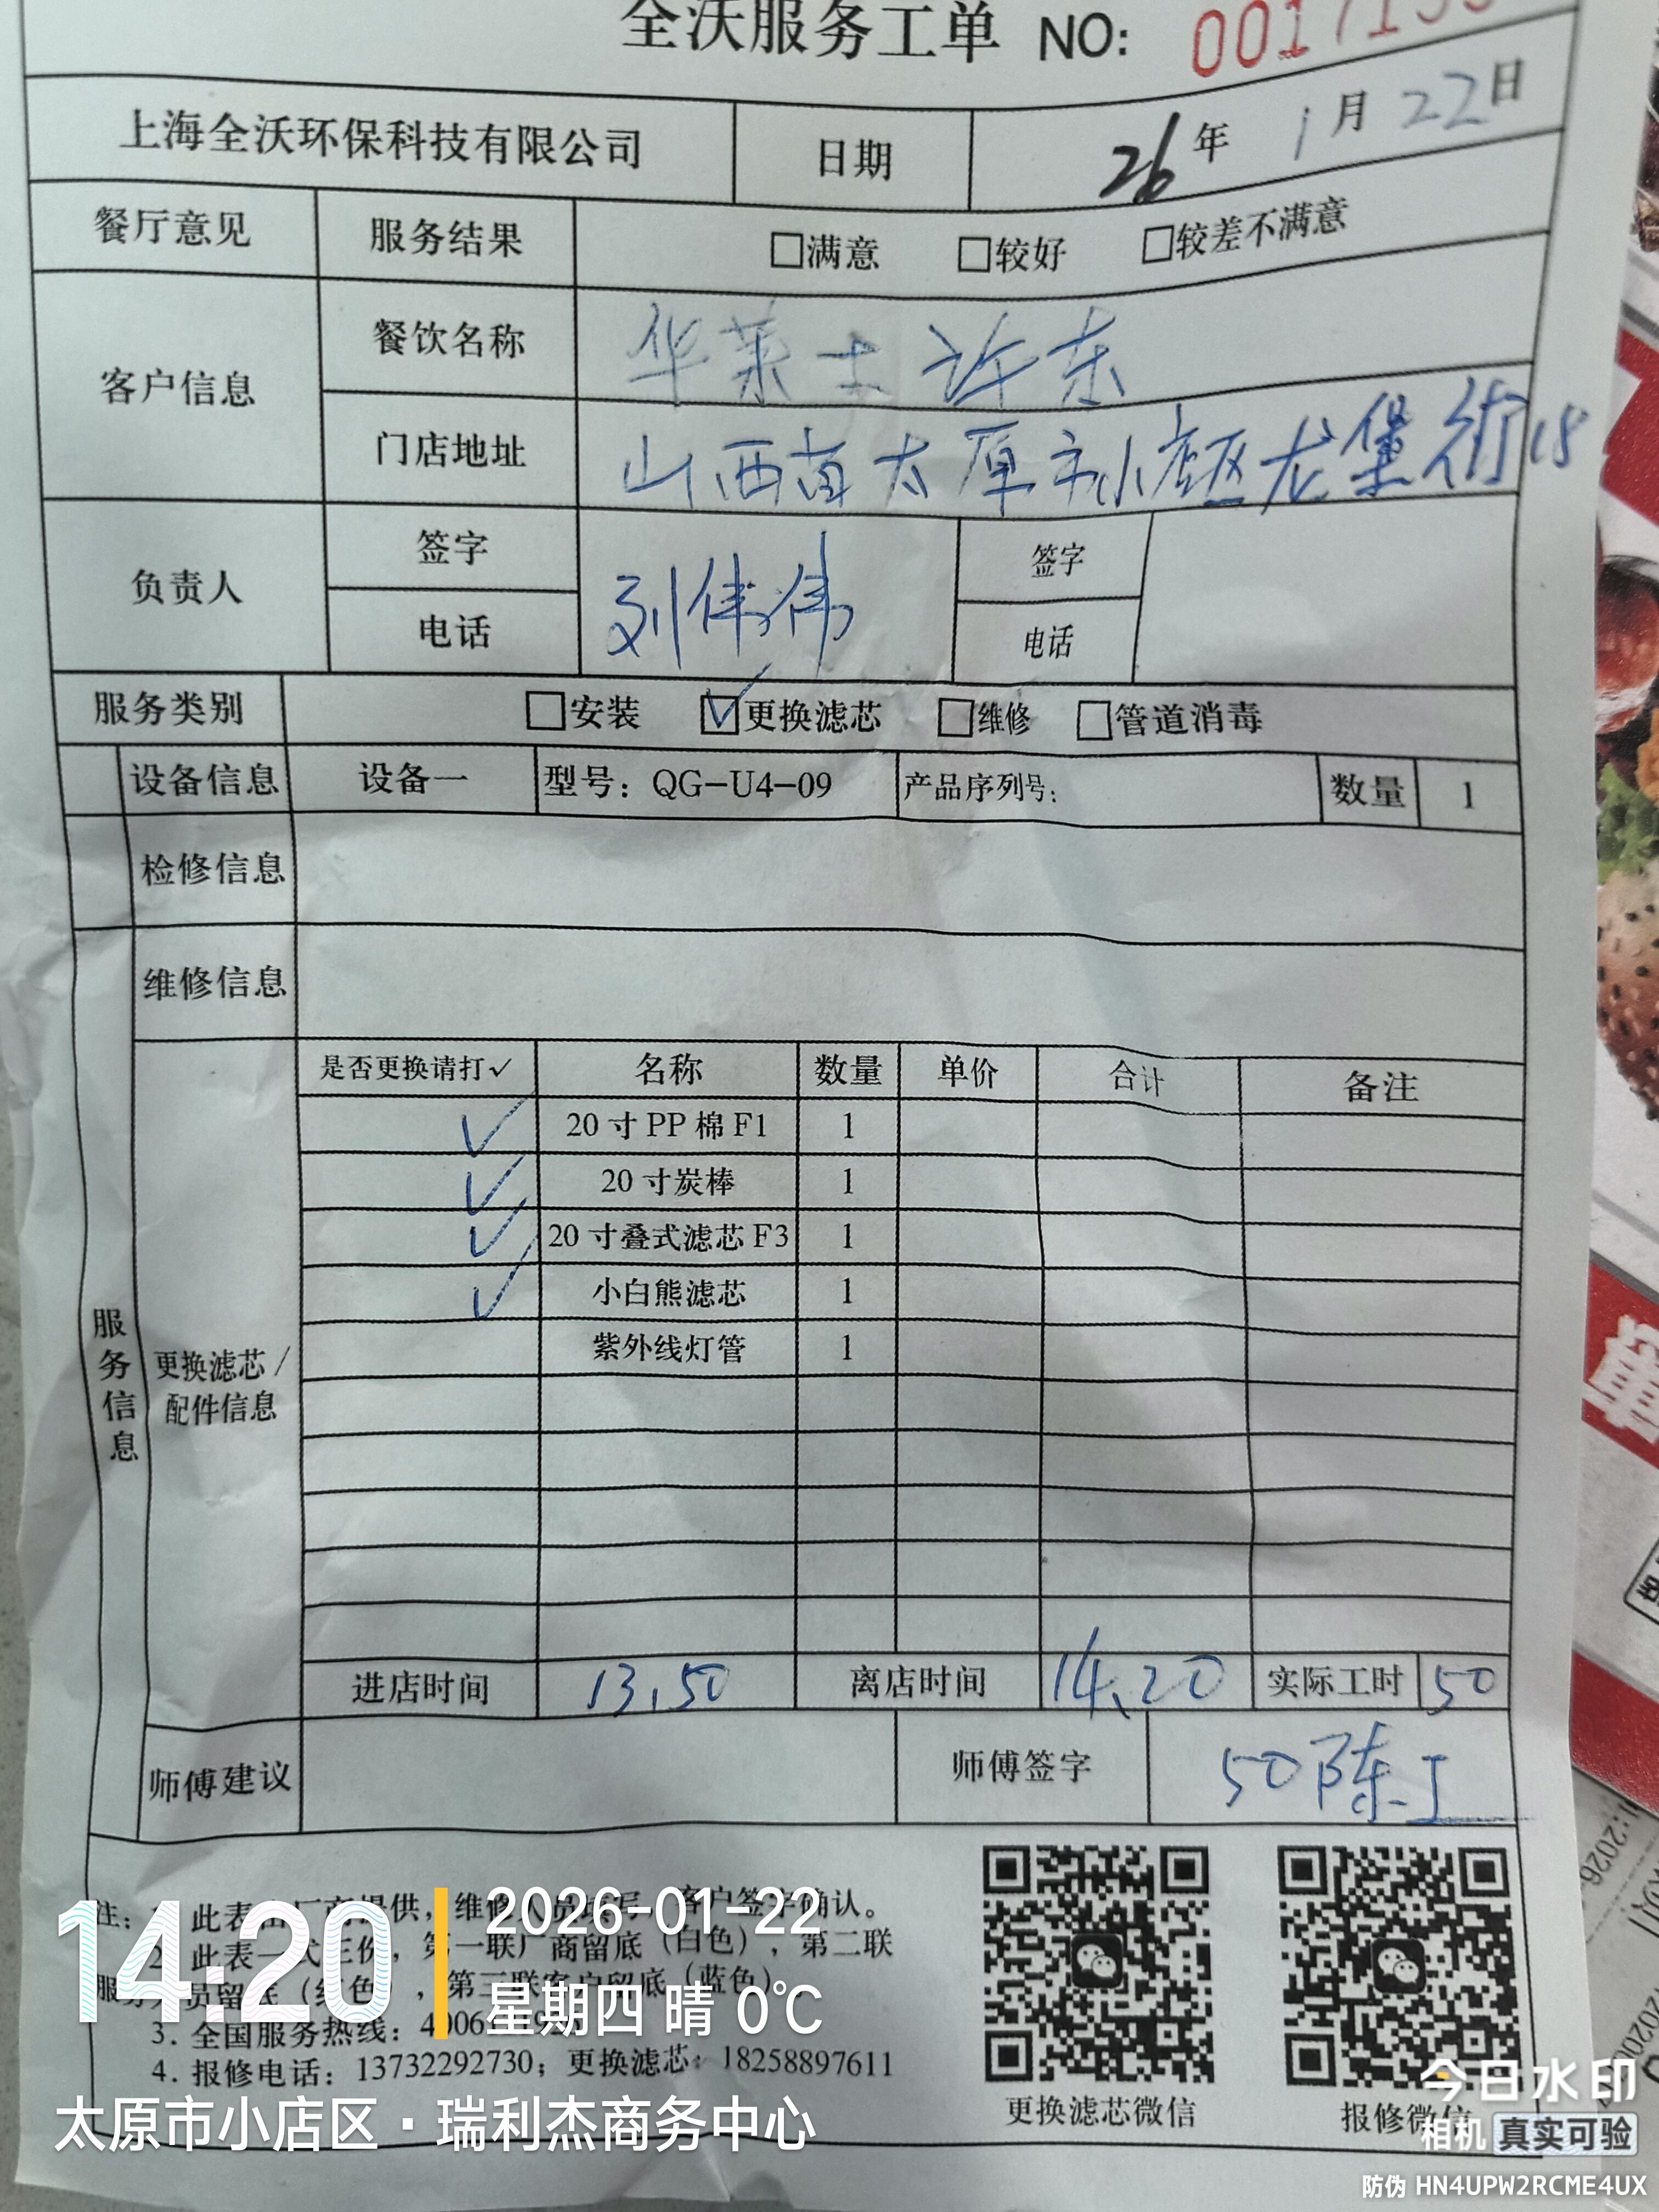 全沃服务工单 NO: 00171
上海全沃环保科技有限公司 日期 26年1月22日
餐厅意见 服务结果 □满意 □较好 □较差不满意
客户信息 餐饮名称 华莱士许东
门店地址 山西省太原市小店区龙堡街18
负责人 签字 刘伟伟 签字
电话 电话
服务类别 □安装 ☑更换滤芯 □维修 □管道消毒
设备信息 设备一 型号：QG-U4-09 产品序列号： 数量 1
检修信息
维修信息
服务信息
更换滤芯/
配件信息
是否更换请打✓ 名称 数量 单价 合计 备注
✓ 20寸PP棉F1 1
✓ 20寸炭棒 1
✓ 20寸叠式滤芯F3 1
✓ 小白熊滤芯 1
紫外线灯管 1
进店时间 13.50 离店时间 14.20 实际工时 50
师傅建议 师傅签字 50陈工
注： 此表 厂商提供，维修 员 写，客户签字确认。
2. 此表一式三份，第一联厂商留底（白色），第二联
服务 员留底（红色），第三联客户留底（蓝色）
3. 全国服务热线：
4. 报修电话：13732292730；更换滤芯：18258897611
更换滤芯微信
报修微信
14:20
2026-01-22
星期四 晴 0℃
太原市小店区·瑞利杰商务中心
今日水印
相机 真实可验
防伪 HN4UPW2RCME4UX